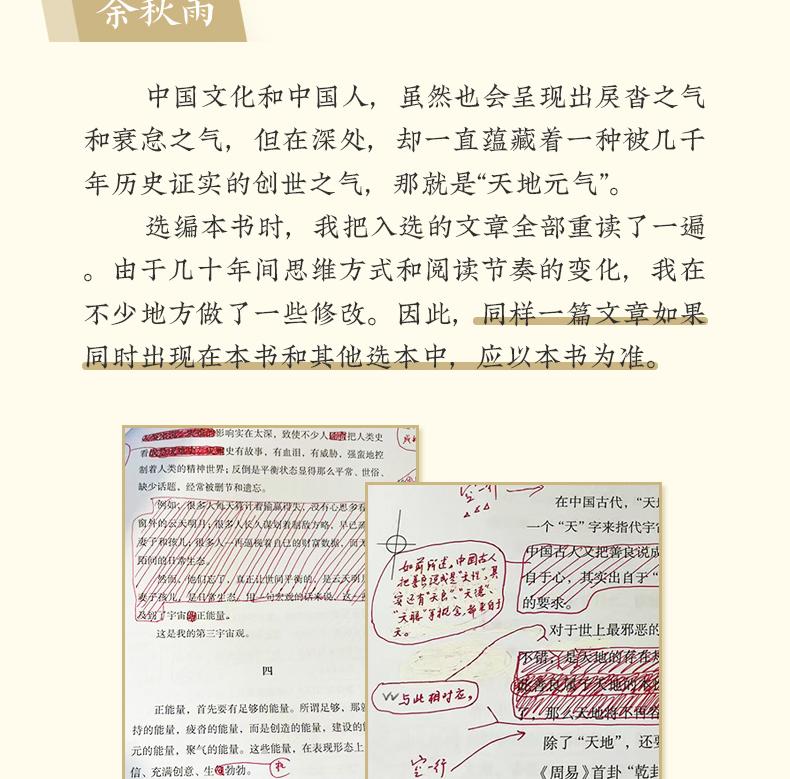 余秋雨
中国文化和中国人，虽然也会呈现出戾沓之气
和衰怠之气，但在深处，却一直蕴藏着一种被几千
年历史证实的创世之气，那就是“天地元气”。
选编本书时，我把入选的文章全部重读了一遍
。由于几十年间思维方式和阅读节奏的变化，我在
不少地方做了一些修改。因此，同样一篇文章如果
同时出现在本书和其他选本中，应以本书为准。
影响实在太深，致使不少人把人类史
看史有故事，有血泪，有威胁，强蛮地控
制着人类的精神世界；反倒是平衡状态显得那么平常、世俗、
缺少话题，经常被删节和遗忘。
例如，很多人每天算计着输赢得失，没有心思多看
窗外的云天明月；很多人长久谋划着制敌方略，早已
妻子和孩儿；很多人一再逼视着自己的财富数据，而
陌间的日常生态。
然而，他们忘了，真正让世间平衡的，是云天明月
妻子孩儿，是日常生态。用一句宏观的话来说，这
及到了宇宙正能量。
这是我的第三宇宙观。
四
正能量，首先要有足够的能量。所谓足够，那
持的能量，疲沓的能量，而是创造的能量，建设的
元的能量，聚气的能量。这些能量，在表现形态上
信、充满创意、生勃勃。
机
空一行
在中国古代，“天
一个“天”字来指代宇
中国古人又把善良说成
自于心，其实出自于“
的要求。
如前所述，中国古人
把善良说成是“天性”，其
实还有“天良”、“天德”、
“天福”等概念，都来自于
天。
对于世上最邪恶的
不错，是天地的存在
了，那么天地将不再容
与此相对应，
除了“天地”，还要
空一行
《周易》首卦“乾卦